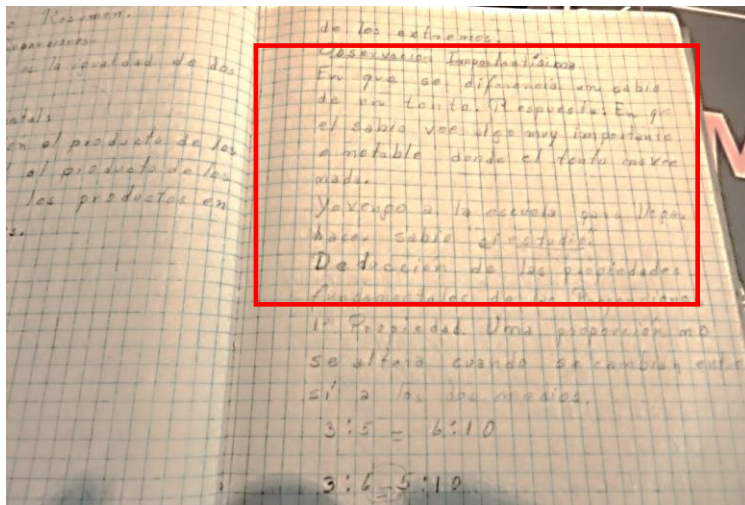 Resumen.
es la igualdad de dos
en el producto de los
al producto de los
los productos en
de los extremos.
Observación Importantísima.
En que se diferencia un sabio
de un tonto. Respuesta: En que
el sabio vee algo muy importante
o notable donde el tonto no vee
nada.
Yo vengo a la escuela para llegar
hacer sabio "si estudio".
Deducción de las propiedades
fundamentales de las Proporciones
1ª Propiedad. Una proporción no
se altera cuando se cambian entre
sí a los dos medios.
3:5 = 6:10
3:6 = 5:10